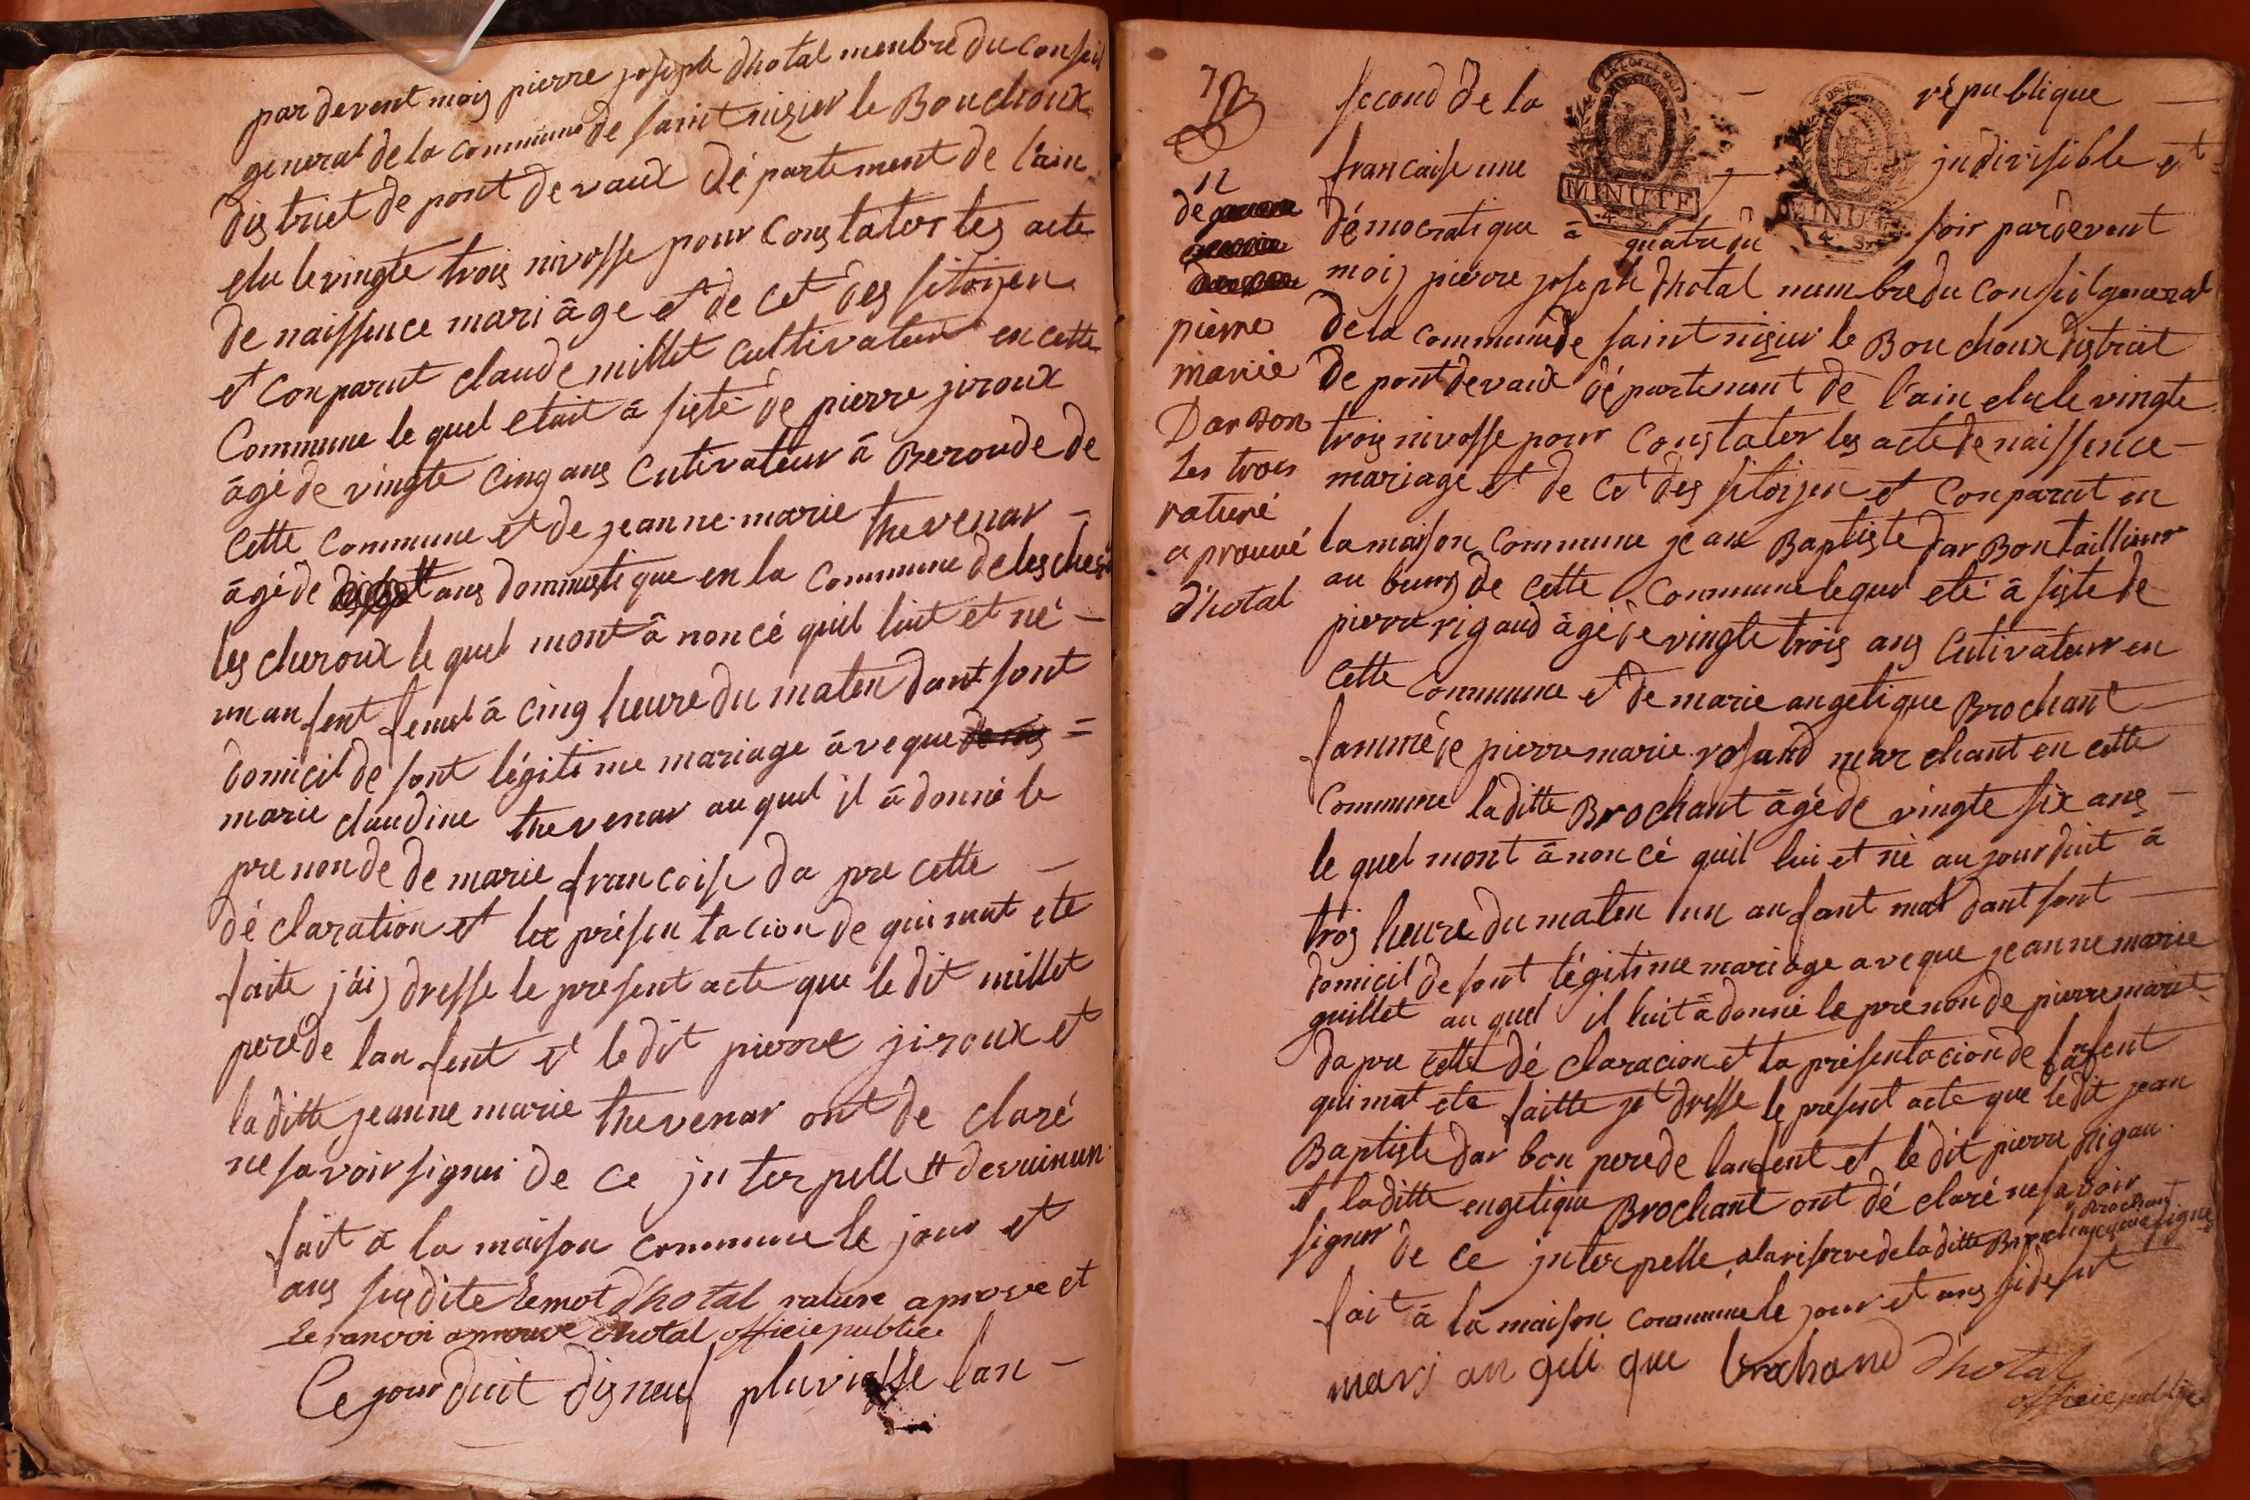 par devent mois pierre joseph dhotal menbre du conseil
general de la commune de saint nizier le Bouchoux
district de pont de vaux département de lain
elu le vingte trois nivosse pour constater les acte
de naissence mariâge et de cet des sitoijen
et conparut claude millet cultivateur en cette
Commune le quel etait â sisté de pierre jiroux
âgé de vingte cinq ans cutivateur â Beroude de
cette commune et de jeanne marie thevenar –
âgé de ans dommestique en la commune de les cher
les cheroux le quel mont â noncé quil luit et né –
un an fent femel â cinq heure du maten dant sont
domicil de sont légitime mariage âveque =
marie claudine thevenar au quel il â donné le
pre non de de marie francoise da pre cette –
dé claration et la présen tacion de qui mat ete
faite jâij dresse le present acte que le dit millet
pere de lan fent et le dit pierre jiroux et
la ditte jeanne marie thevenar ont de claré
ne savoir signer de ce jnterpelle # de
fait â la maison commune le jour et
ans susdite le mot d'hotal rature aprove et
le ranvoi aprouve dhotal officie public
Ce jour duit disneuf pluviosse lan –
12
de
pierre
marie
Darbon
les trois
raturé
a prouvé
d'hotal
second de la – république –
francaise une jndivisible et
MINUTE
4. S.
MINUTE
4. S.
démocratique â quatre du soir par devent
mois pierre joseph dhotal menbre du conseil general
de la commune de saint nizier le Bouchoux district
de pont de vaux département de lain elu le vingte
trois nivosse pour constater les acte de naissence –
mariage et de cet des sitoijen et conparut en
la maison commune jean Baptiste darbon taillieur
au bourg de cette commune le quel eté â siste de
pierre rigaud âgé de vingte trois ans cutivateur en
cette commune et de marie angelique Brochant –
famme de pierre marie rosand marchant en cette
commune la ditte Brochant âgé de vingte six ans –
le quel mont ânoncé quil lui et né au jourduit â
trois heure du maten un an fant mal dant sont –
domicil de sont légitime mariage aveque jeanne marie
guillet au quel il luit â donné le prenon de pierre marie
da pre cette dé claracion et la présentacion de lanfent
qui mat ete faitte jet dresse le present acte que le dit jean
Baptiste dar bon pere de lanfent et le dit pierre rigau
et la ditte engelique Brochant ont dé claré ne savoir
signer de ce jnterpelle a la riserve de la ditte Brochant signe
fait â la maison commune le jour et ans
marj an geli que brochand d'hotal
officie public